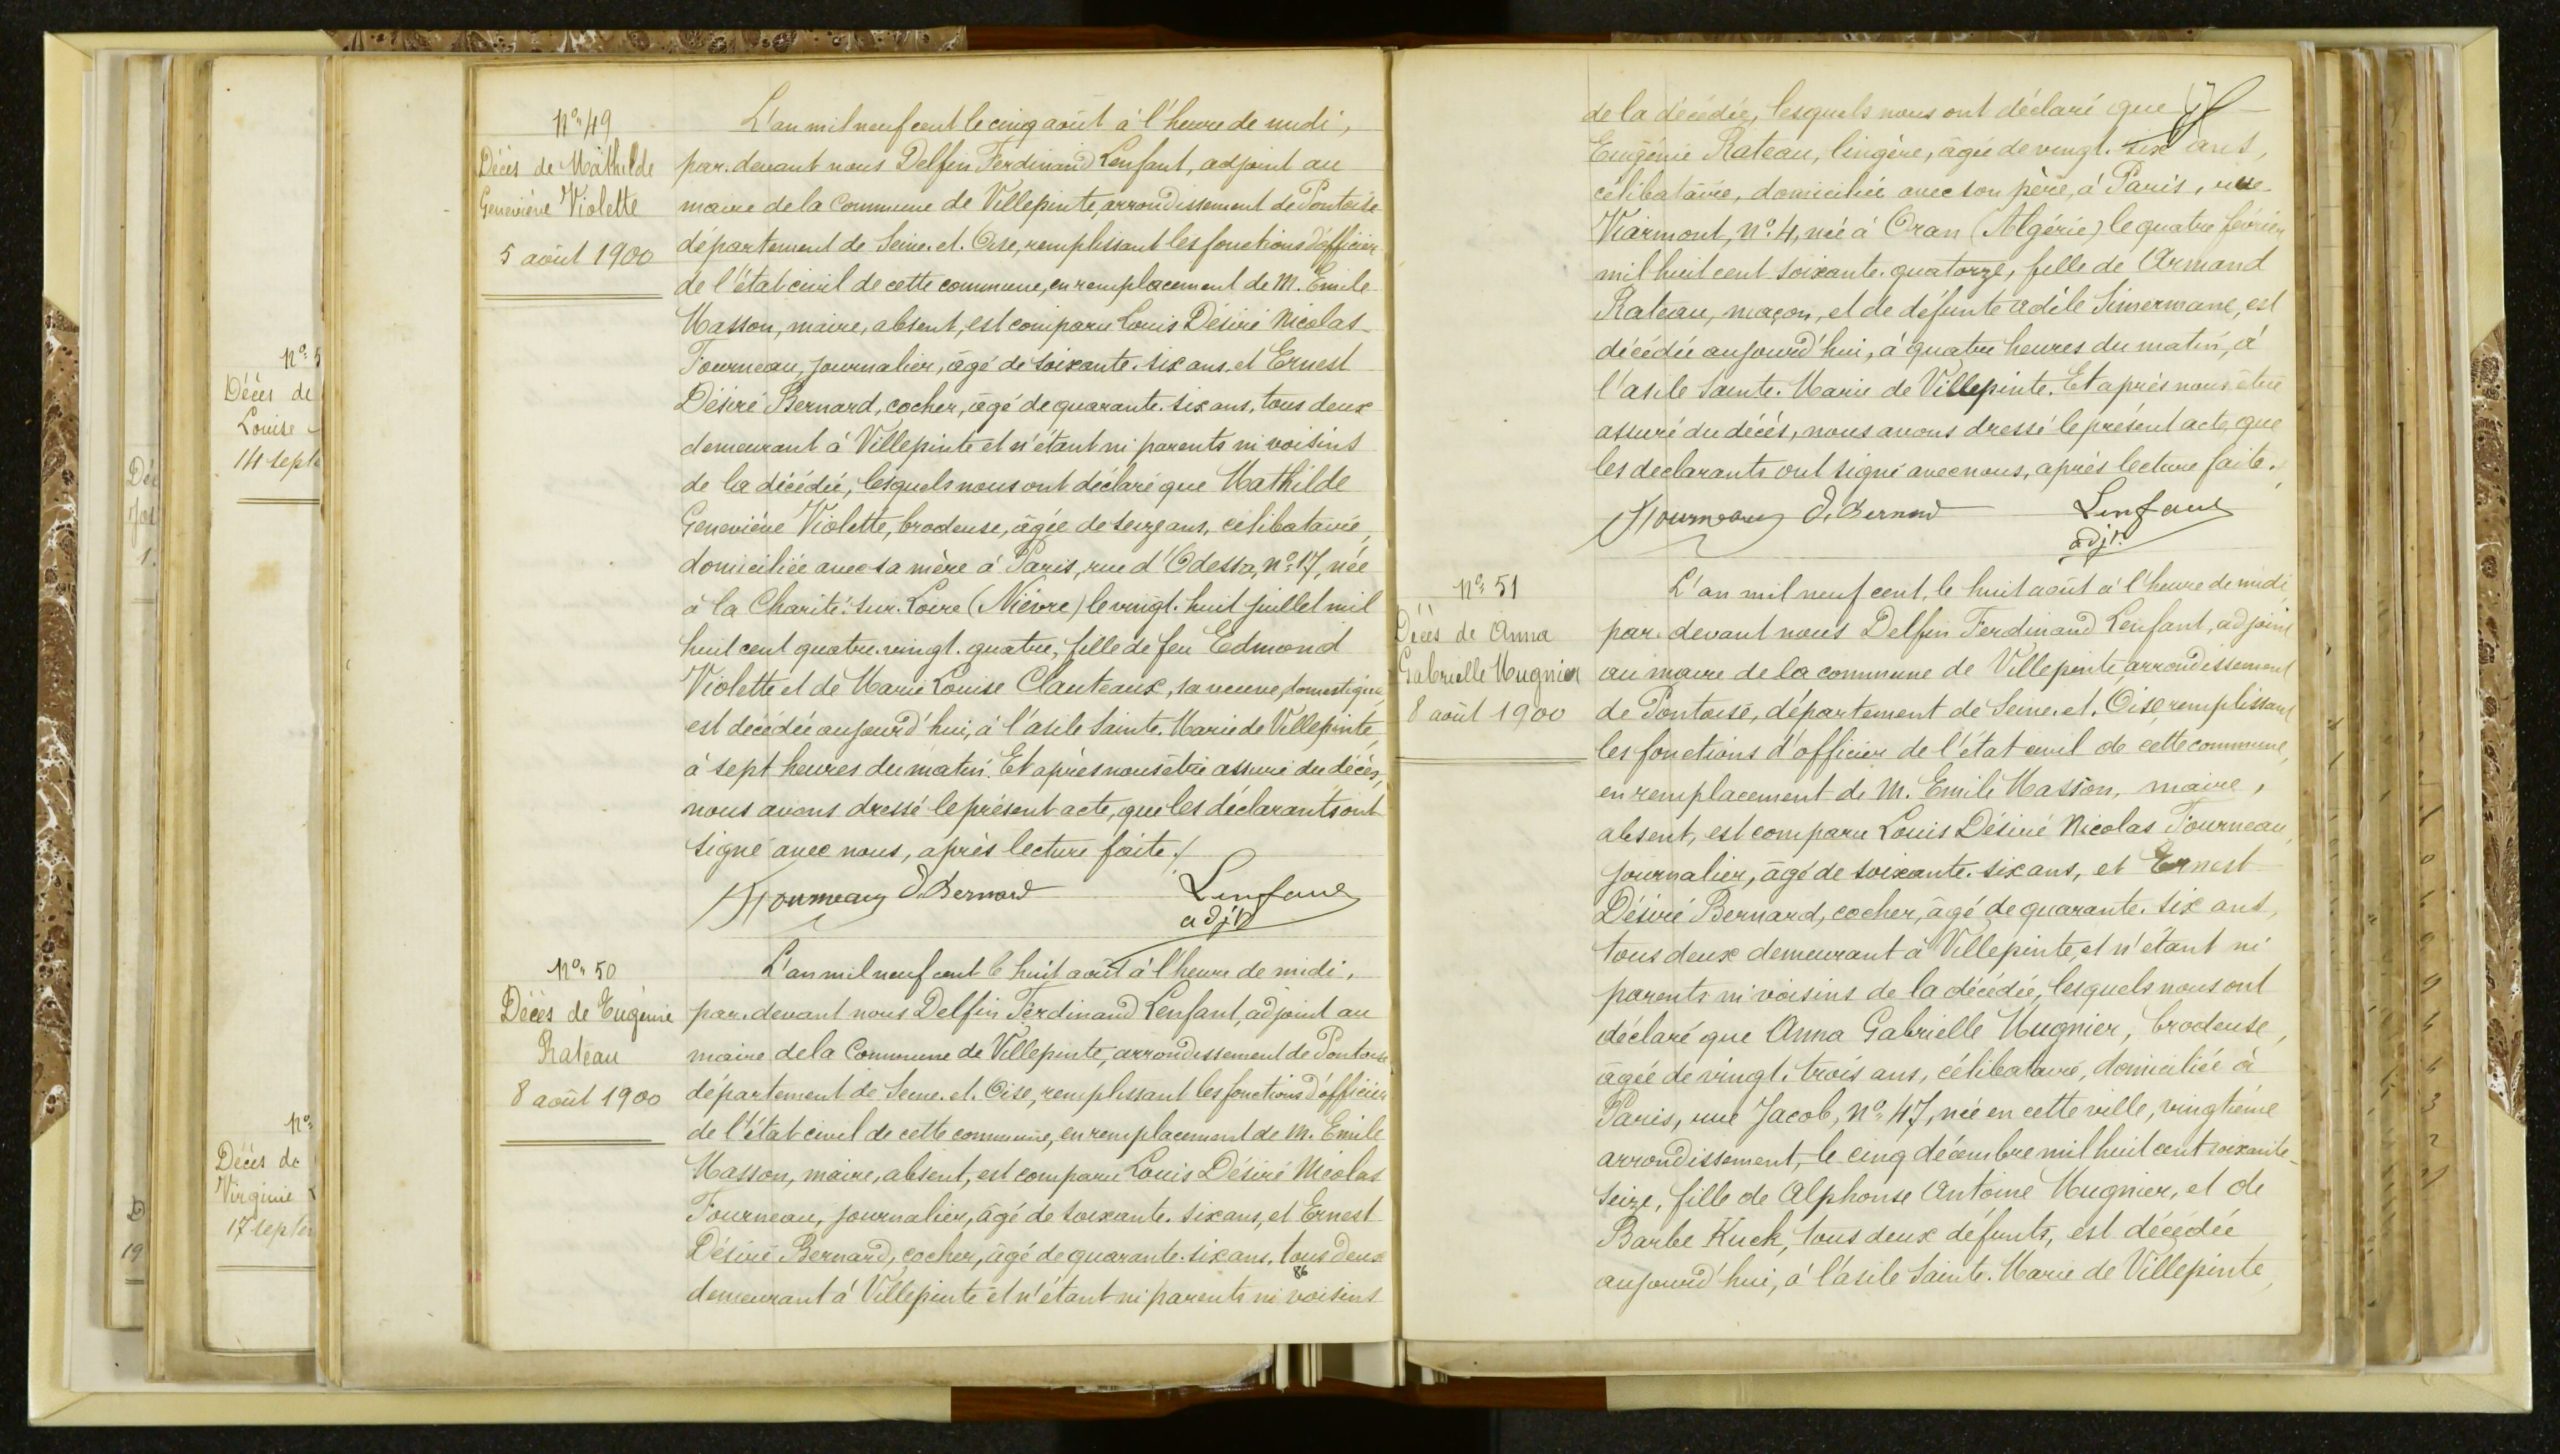 Nº 5
Décès de
Louise
14 septe
Nº
Décès de
Virginie
17 septem
19
Nº 49
Décès de Mathilde
Geneviève Violette
5 août 1900
L'an mil neuf cent le cinq août à l'heure de midi,
par-devant nous Delfin Ferdinand Lenfant, adjoint au
maire de la Commune de Villepinte, arrondissement de Pontoise
département de Seine-et-Oise, remplissant les fonctions d'officier
de l'état civil de cette commune, en remplacement de M. Emile
Masson, maire, absent, est comparu Louis Désiré Nicolas
Fourneau, journalier, âgé de soixante-six ans, et Ernest
Désiré Bernard, cocher, âgé de quarante-six ans, tous deux
demeurant à Villepinte et n'étant ni parents ni voisins
de la décédée, lesquels nous ont déclaré que Mathilde
Geneviève Violette, brodeuse, âgée de seize ans, célibataire,
domiciliée avec sa mère à Paris, rue d'Odessa, nº 17, née
à la Charité-sur-Loire (Nièvre) le vingt-huit juillet mil
huit cent quatre-vingt-quatre, fille de feu Edmond
Violette et de Marie Louise Clauteaux, sa veuve, domestique,
est décédée aujourd'hui, à l'asile Sainte-Marie de Villepinte,
à sept heures du matin. Et après nous être assuré du décès,
nous avons dressé le présent acte, que les déclarants ont
signé avec nous, après lecture faite./
Fourneau D. Bernard Lenfant
adjt
Nº 50
Décès de Eugénie
Rateau
8 août 1900
L'an mil neuf cent le huit août à l'heure de midi,
par-devant nous Delfin Ferdinand Lenfant, adjoint au
maire de la Commune de Villepinte, arrondissement de Pontoise
département de Seine-et-Oise, remplissant les fonctions d'officier
de l'état civil de cette commune, en remplacement de M. Emile
Masson, maire, absent, est comparu Louis Désiré Nicolas
Fourneau, journalier, âgé de soixante-six ans, et Ernest
Désiré Bernard, cocher, âgé de quarante-six ans, tous deux
86
demeurant à Villepinte et n'étant ni parents ni voisins
de la décédée, lesquels nous ont déclaré que
Eugénie Rateau, lingère, âgée de vingt-six ans,
célibataire, domiciliée avec son père, à Paris, rue
Viarmont, nº 4, née à Oran (Algérie) le quatre février
mil huit cent soixante-quatorze, fille de Armand
Rateau, maçon, et de défunte Adèle Simermane, est
décédée aujourd'hui, à quatre heures du matin, à
l'asile Sainte-Marie de Villepinte. Et après nous être
assuré du décès, nous avons dressé le présent acte, que
les déclarants ont signé avec nous, après lecture faite.
Fourneau D. Bernard Lenfant
adjt
Nº 51
Décès de Anna
Gabrielle Mugnier
8 août 1900
L'an mil neuf cent, le huit août à l'heure de midi
par-devant nous Delfin Ferdinand Lenfant, adjoint
au maire de la commune de Villepinte, arrondissement
de Pontoise, département de Seine-et-Oise, remplissant
les fonctions d'officier de l'état civil de cette commune,
en remplacement de M. Emile Masson, maire,
absent, est comparu Louis Désiré Nicolas Fourneau,
journalier, âgé de soixante-six ans, et Ernest
Désiré Bernard, cocher, âgé de quarante-six ans,
tous deux demeurant à Villepinte, et n'étant ni
parents ni voisins de la décédée, lesquels nous ont
déclaré que Anna Gabrielle Mugnier, brodeuse,
âgée de vingt-trois ans, célibataire, domiciliée à
Paris, rue Jacob, nº 47, née en cette ville, vingtième
arrondissement, le cinq décembre mil huit cent soixante-
seize, fille de Alphonse Antoine Mugnier, et de
Barbe Kuck, tous deux défunts, est décédée
aujourd'hui, à l'asile Sainte-Marie de Villepinte,